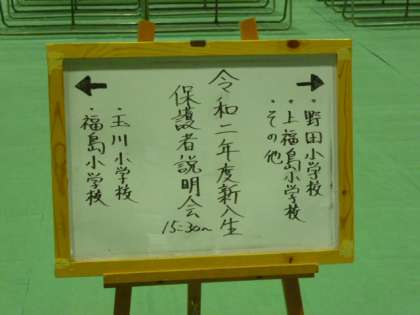 令和二年度新入生
保護者説明会
15:30~
・野田小学校
・上福島小学校
・その他
・玉川小学校
・福島小学校